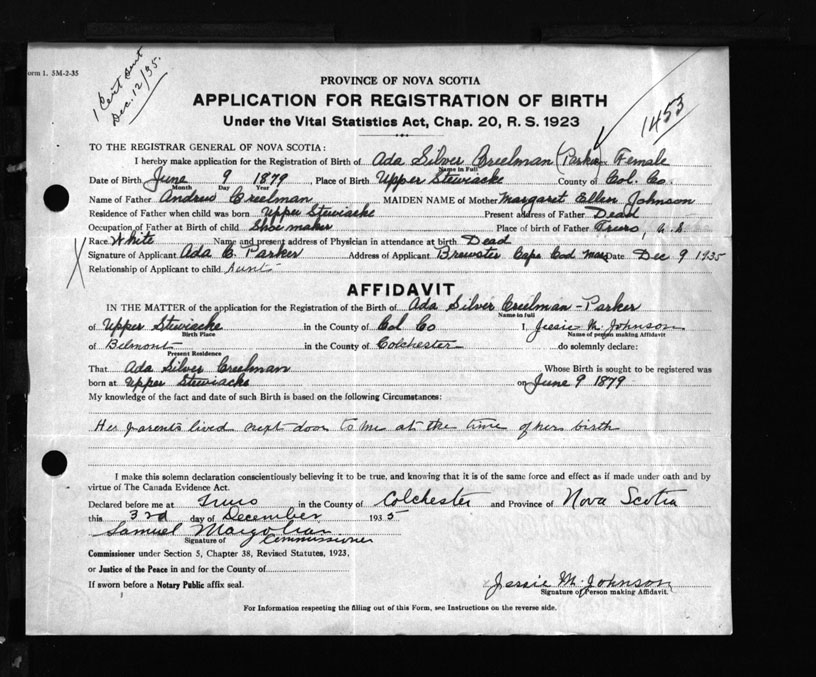 orm 1. 5M-2-35
1 Cert sent
Dec. 12/35.
1453
PROVINCE OF NOVA SCOTIA
APPLICATION FOR REGISTRATION OF BIRTH
Under the Vital Statistics Act, Chap. 20, R. S. 1923
TO THE REGISTRAR GENERAL OF NOVA SCOTIA:
I hereby make application for the Registration of Birth of Ada Silver Creelman (Parker) Female
Name in Full
Date of Birth June 9 1879, Place of Birth Upper Stewiacke County of Col. Co.
Month Day Year
Name of Father Andrew Creelman MAIDEN NAME of Mother Margaret Ellen Johnson
Residence of Father when child was born Upper Stewiacke Present address of Father Dead
Occupation of Father at Birth of child Shoemaker Place of birth of Father Truro,
Race White Name and present address of Physician in attendance at birth Dead
Signature of Applicant Ada C. Parker Address of Applicant Brewster Cape Cod Mass Date Dec 9 1935
Relationship of Applicant to child Aunt
AFFIDAVIT
IN THE MATTER of the application for the Registration of the Birth of Ada Silver Creelman-Parker
Name in full
of Upper Stewiacke in the County of Col Co I, Jessie M. Johnson
Birth Place Name of person making Affidavit
of Belmont in the County of Colchester do solemnly declare:
Present Residence
That Ada Silver Creelman Whose Birth is sought to be registered was
born at Upper Stewiacke on June 9 1879
My knowledge of the fact and date of such Birth is based on the following Circumstances:
Her parents lived next door to me at the time of her birth
I make this solemn declaration conscientiously believing it to be true, and knowing that it is of the same force and effect as if made under oath and by
virtue of The Canada Evidence Act.
Declared before me at Truro in the County of Colchester and Province of Nova Scotia
this 3rd day of December 1935
Samuel Margolian
Signature of Commissioner
Commissioner under Section 5, Chapter 38, Revised Statutes, 1923,
or Justice of the Peace in and for the County of
If sworn before a Notary Public affix seal.
Jessie M. Johnson
Signature of Person making Affidavit.
For Information respecting the filling out of this Form, see Instructions on the reverse side.